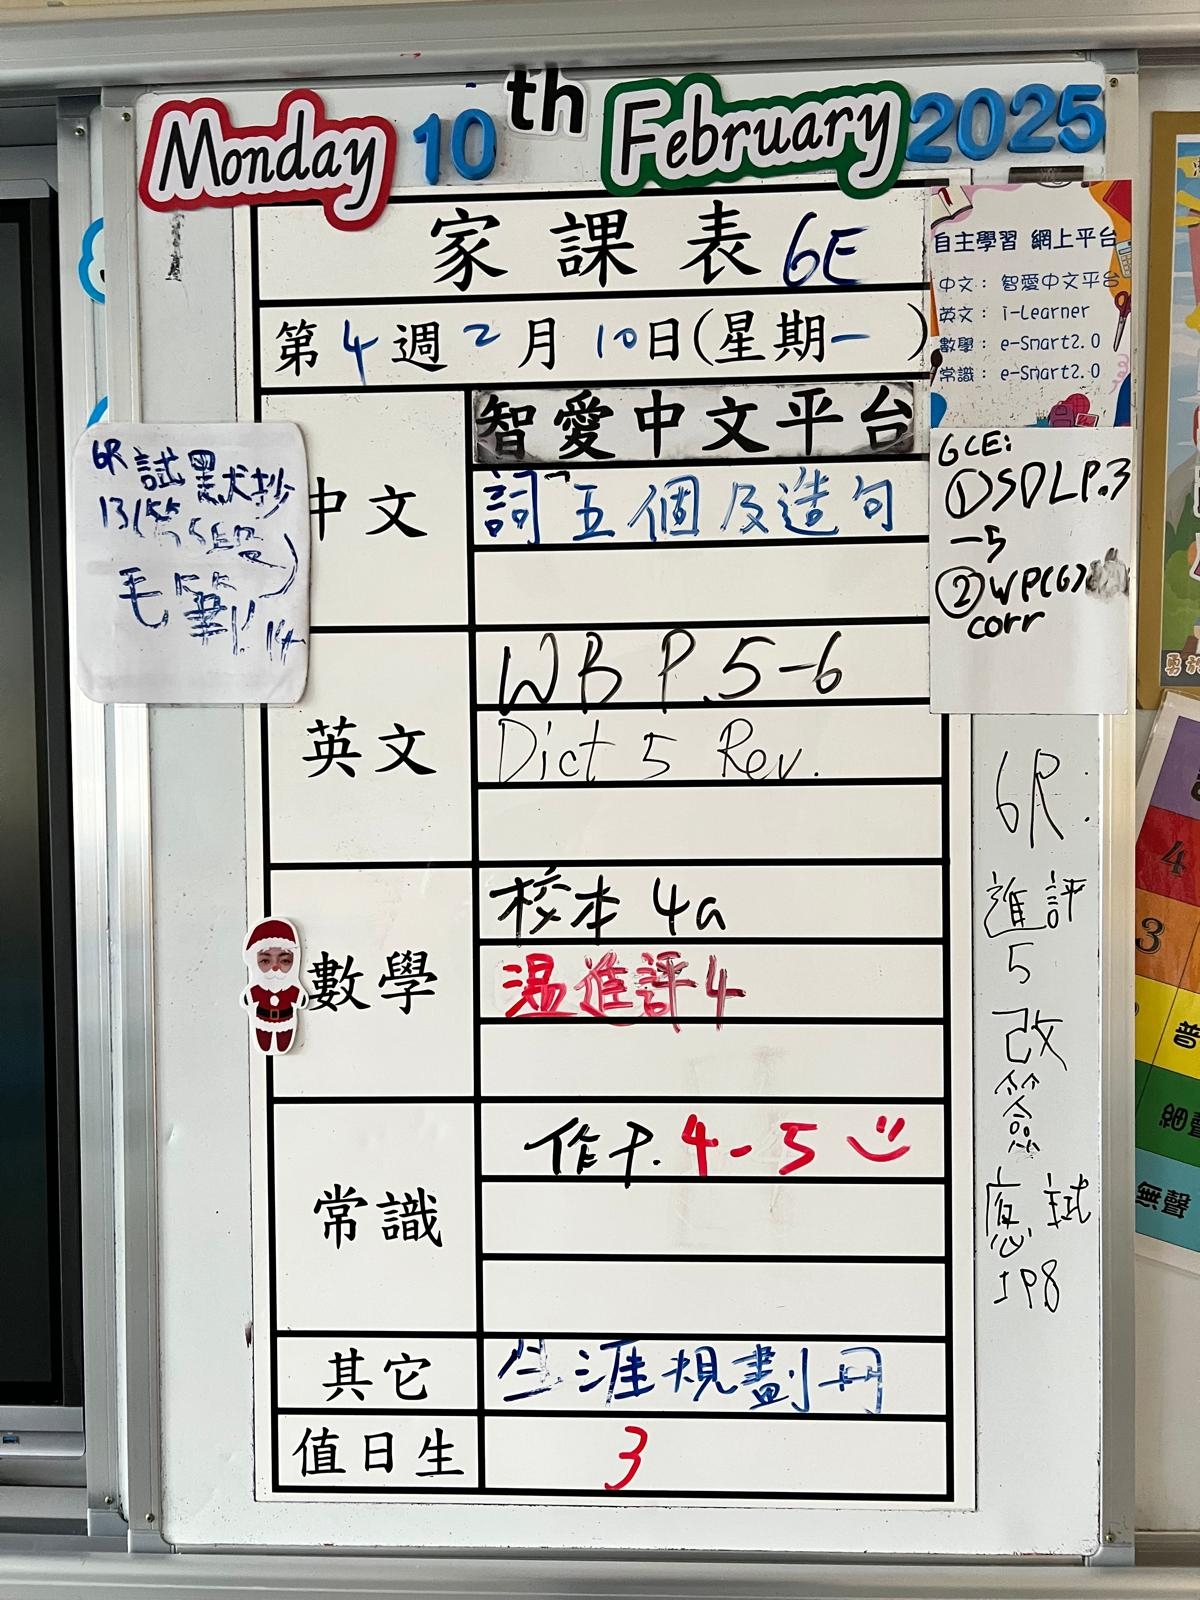 Monday 10th February 2025
家課表 6E
第4週2月10日(星期一)
自主學習 網上平台
中文： 智愛中文平台
英文： i-Learner
數學： e-Smart2.0
常識： e-Smart2.0
中文
智愛中文平台
詞五個及造句
6R 試默抄
13/
毛筆
GCE:
①SDLP.3
-5
②WP(6)
corr
英文
WB P.5-6
Dict 5 Rev.
數學
校本 4a
温進評4
常識
作 P. 4-5
其它
生涯規劃冊
值日生
3
6R:
進評
5
改
簽
應試
1P8
4
3
普
細聲
無聲